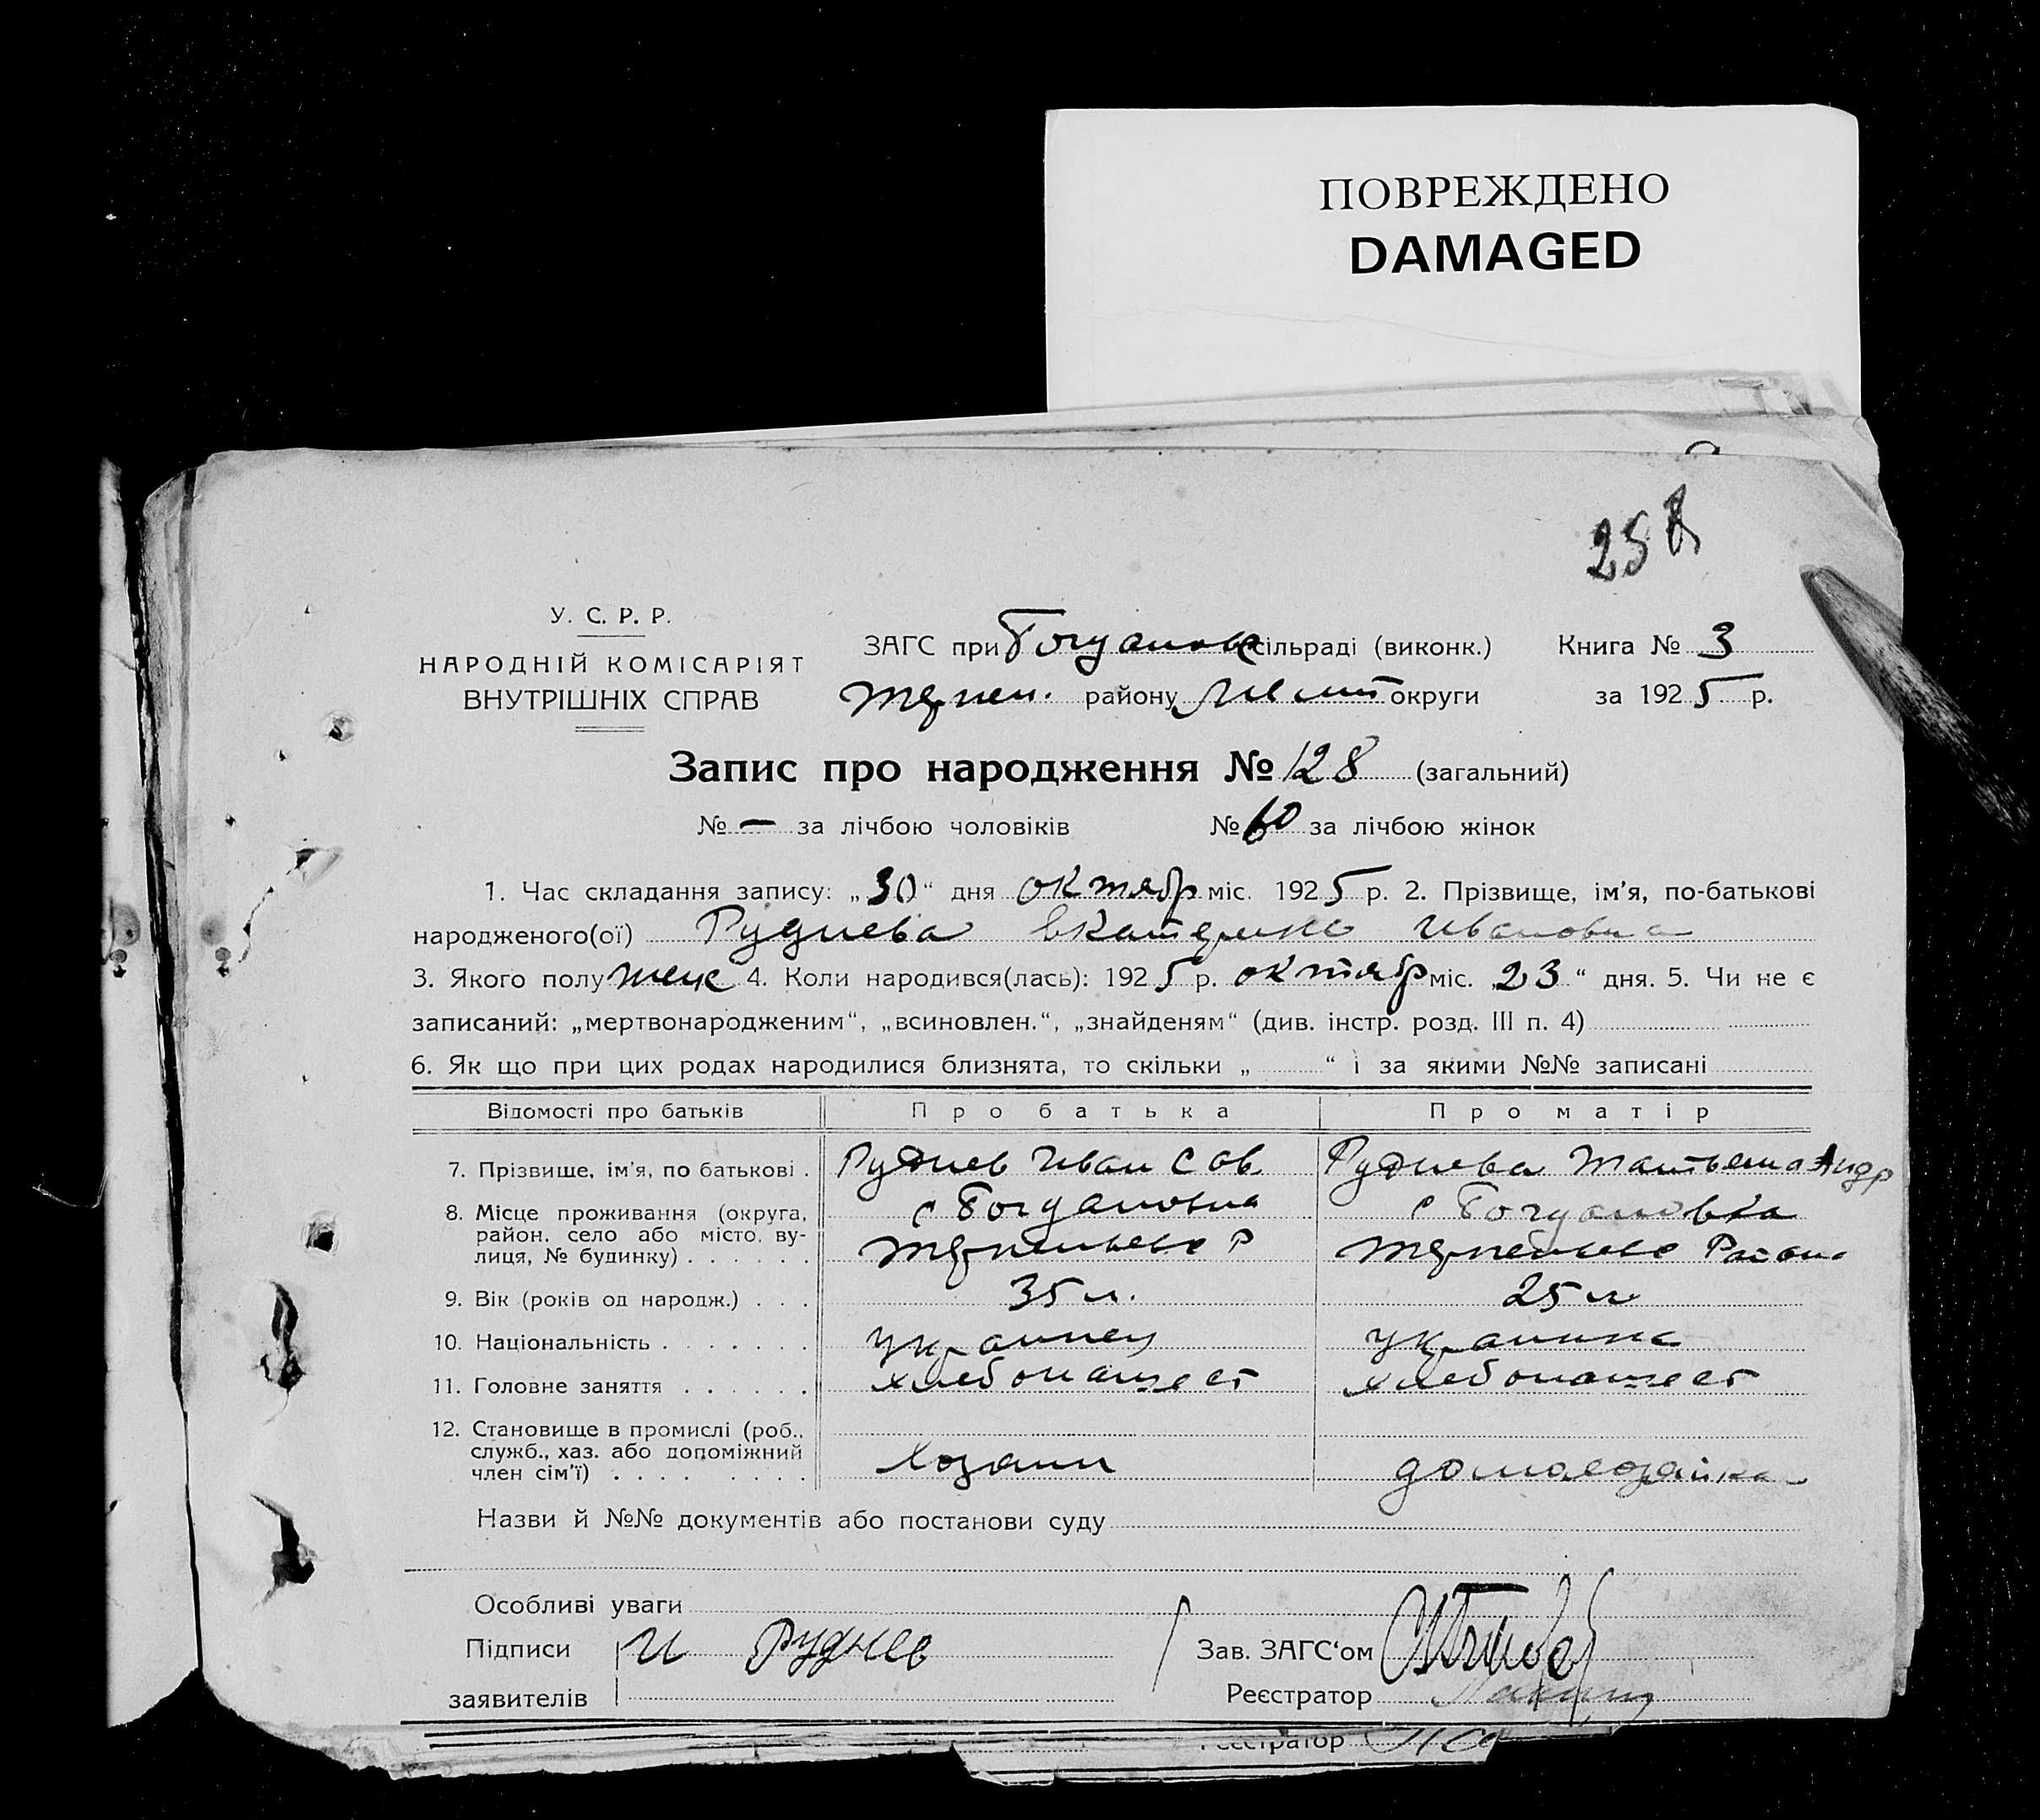 ПОВРЕЖДЕНО
DAMAGED
258
У. С. Р. Р.
НАРОДНІЙ КОМІСАРІЯТ
ВНУТРІШНІХ СПРАВ
ЗАГС при Богданов сільраді (виконк.) Книга № 3
Терпен. району Меліт округи за 1925 р.
Запис про народження № 128 (загальний)
№ — за лічбою чоловіків № 60 за лічбою жінок
1. Час складання запису: „30“ дня октябр міс. 1925 р. 2. Прізвище, ім'я, по-батькові
народженого(ої) Руднева Екатерина Ивановна
3. Якого полу жен 4. Коли народився(лась): 1925 р. октябр міс. 23 “ дня. 5. Чи не є
записаний: „мертвонародженим“, „всиновлен.“, „знайденям“ (див. інстр. розд. III п. 4)
6. Як що при цих родах народилися близнята, то скільки „ “ і за якими №№ записані
Відомості про батьків Про батька Про матір
7. Прізвище, ім'я, по батькові . Руднев Иван Сав. Руднева Татьяна Андр
8. Місце проживання (округа, район, село або місто, вулиця, № будинку) с Богдановка с Богдановка
Терпеньево Р Терпеньево Района
9. Вік (років од народж.) . . . 35 л. 25 л.
10. Національність . . . . . . . украинец украинка
11. Головне заняття . . . . . . хлебопашест хлебопашест
12. Становище в промислі (роб.,
служб., хаз. або допоміжний
член сім'ї) . . . . . . . . Хозяин домохозяйка
Назви й №№ документів або постанови суду
Особливі уваги
Підписи И Руднев Зав. ЗАГС‘ом
заявителів Реєстратор
Реєстратор